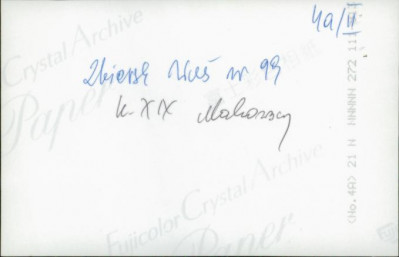 4a/II
Zbiorsk Wieś nr 99
k. XIX
Crystal Archive
Paper
Fujicolor Crystal Archive
Paper
<No.4A> 21 N NNNNN 272 11